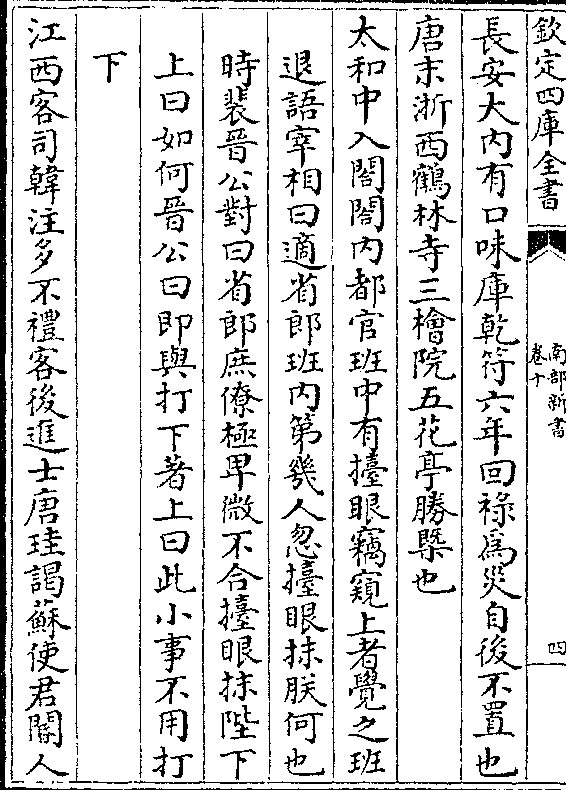 欽定四庫全書
南部新書
卷十
四
長安大内有口味庫乾符六年回禄為災自後不置也
唐末浙西鶴林寺三檜院五花亭勝槩也
太和中入閤閤内都官班中有擡眼竊窺上者覺之班
退語宰相曰適省郎班内第幾人忽擡眼抹朕何也
時裴晉公對曰省郎庶僚極卑微不合擡眼抹陛下
上曰如何晉公曰即與打下著上曰此小事不用打
下
江西客司韓注多不禮客後進士唐珪謁蘇使君閽人